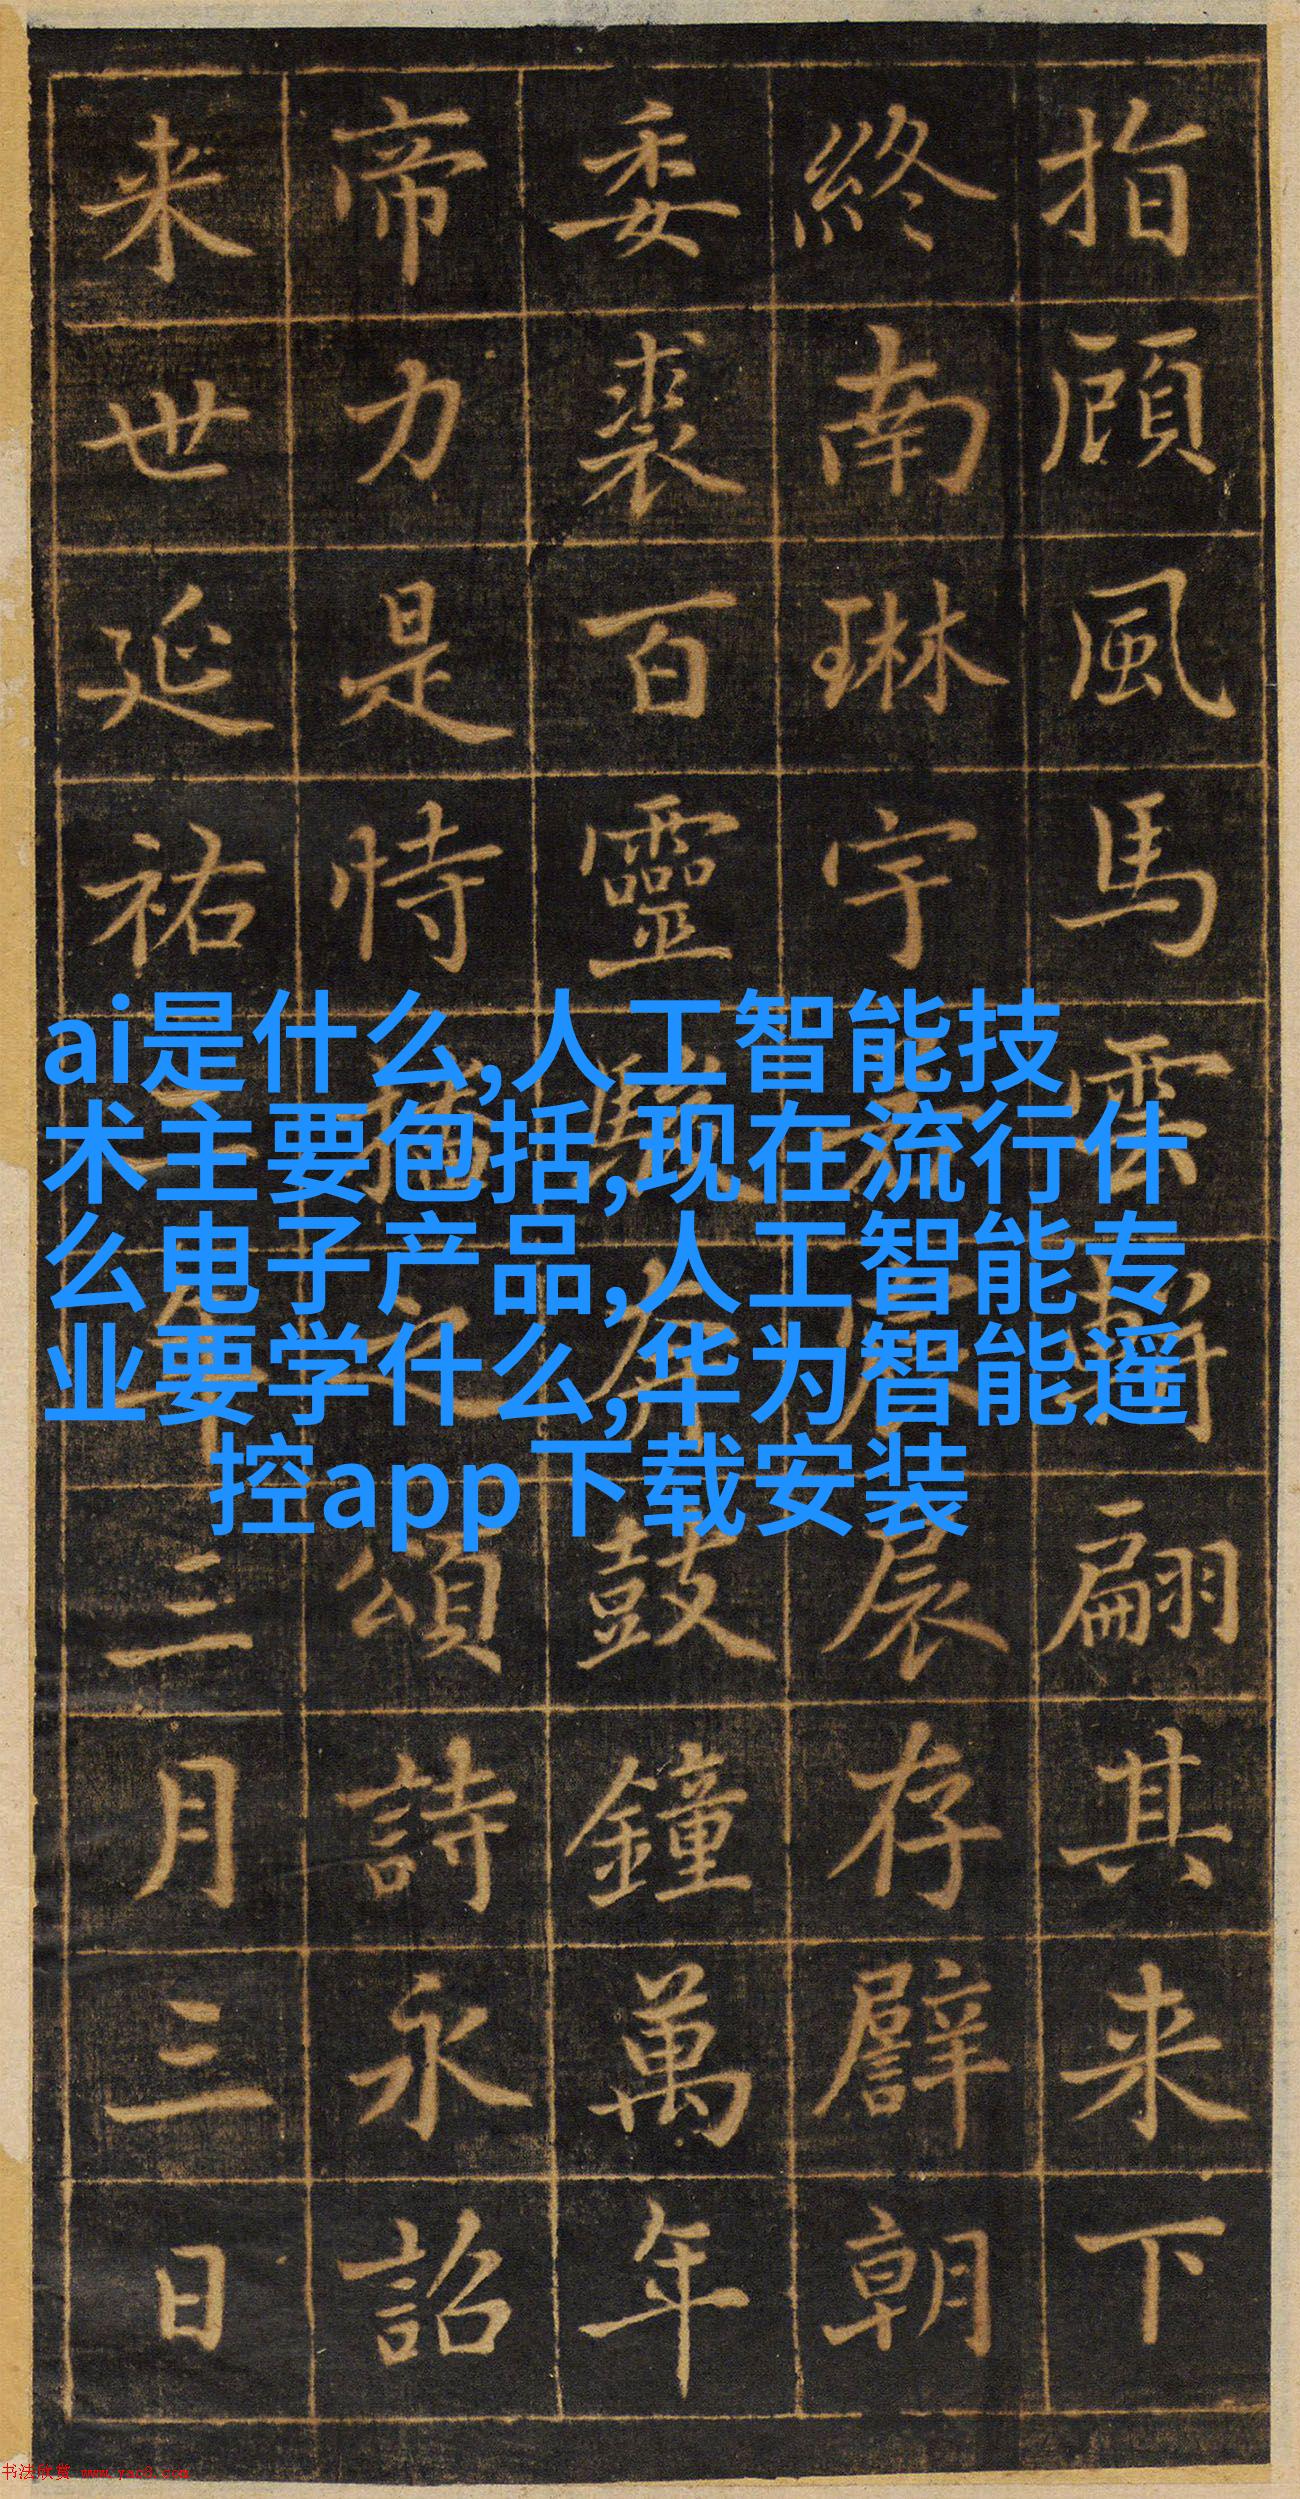 指顧風馬雲翩其来下
終南琳宇存朝
委裘百靈鼓鐘萬年
帝力是恃播之頌詩永詔
来世延祐年三月三日
ai是什么,人工智能技
术主要包括,现在流行什
么电子产品,人工智能专
业要学什么,华为智能遥
控app下载安装
书法欣赏 www.yac8.com